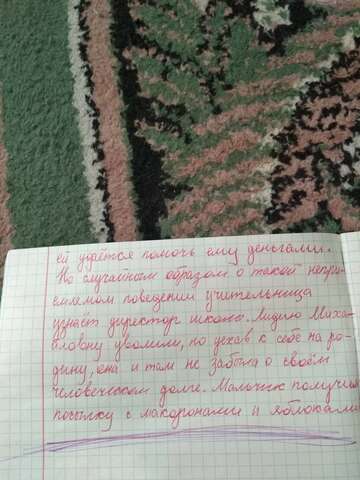 ей удаётся помочь ему деньгами.
Но случайном образом о такой непри-
емлемом поведении учительница
узнаёт директор школы. Лидию Миха-
йловну уволили, но уехав к себе на ро-
дину, она и там не забыла о своём
человеческом долге. Мальчик получил
посылку с макаронами и яблоками